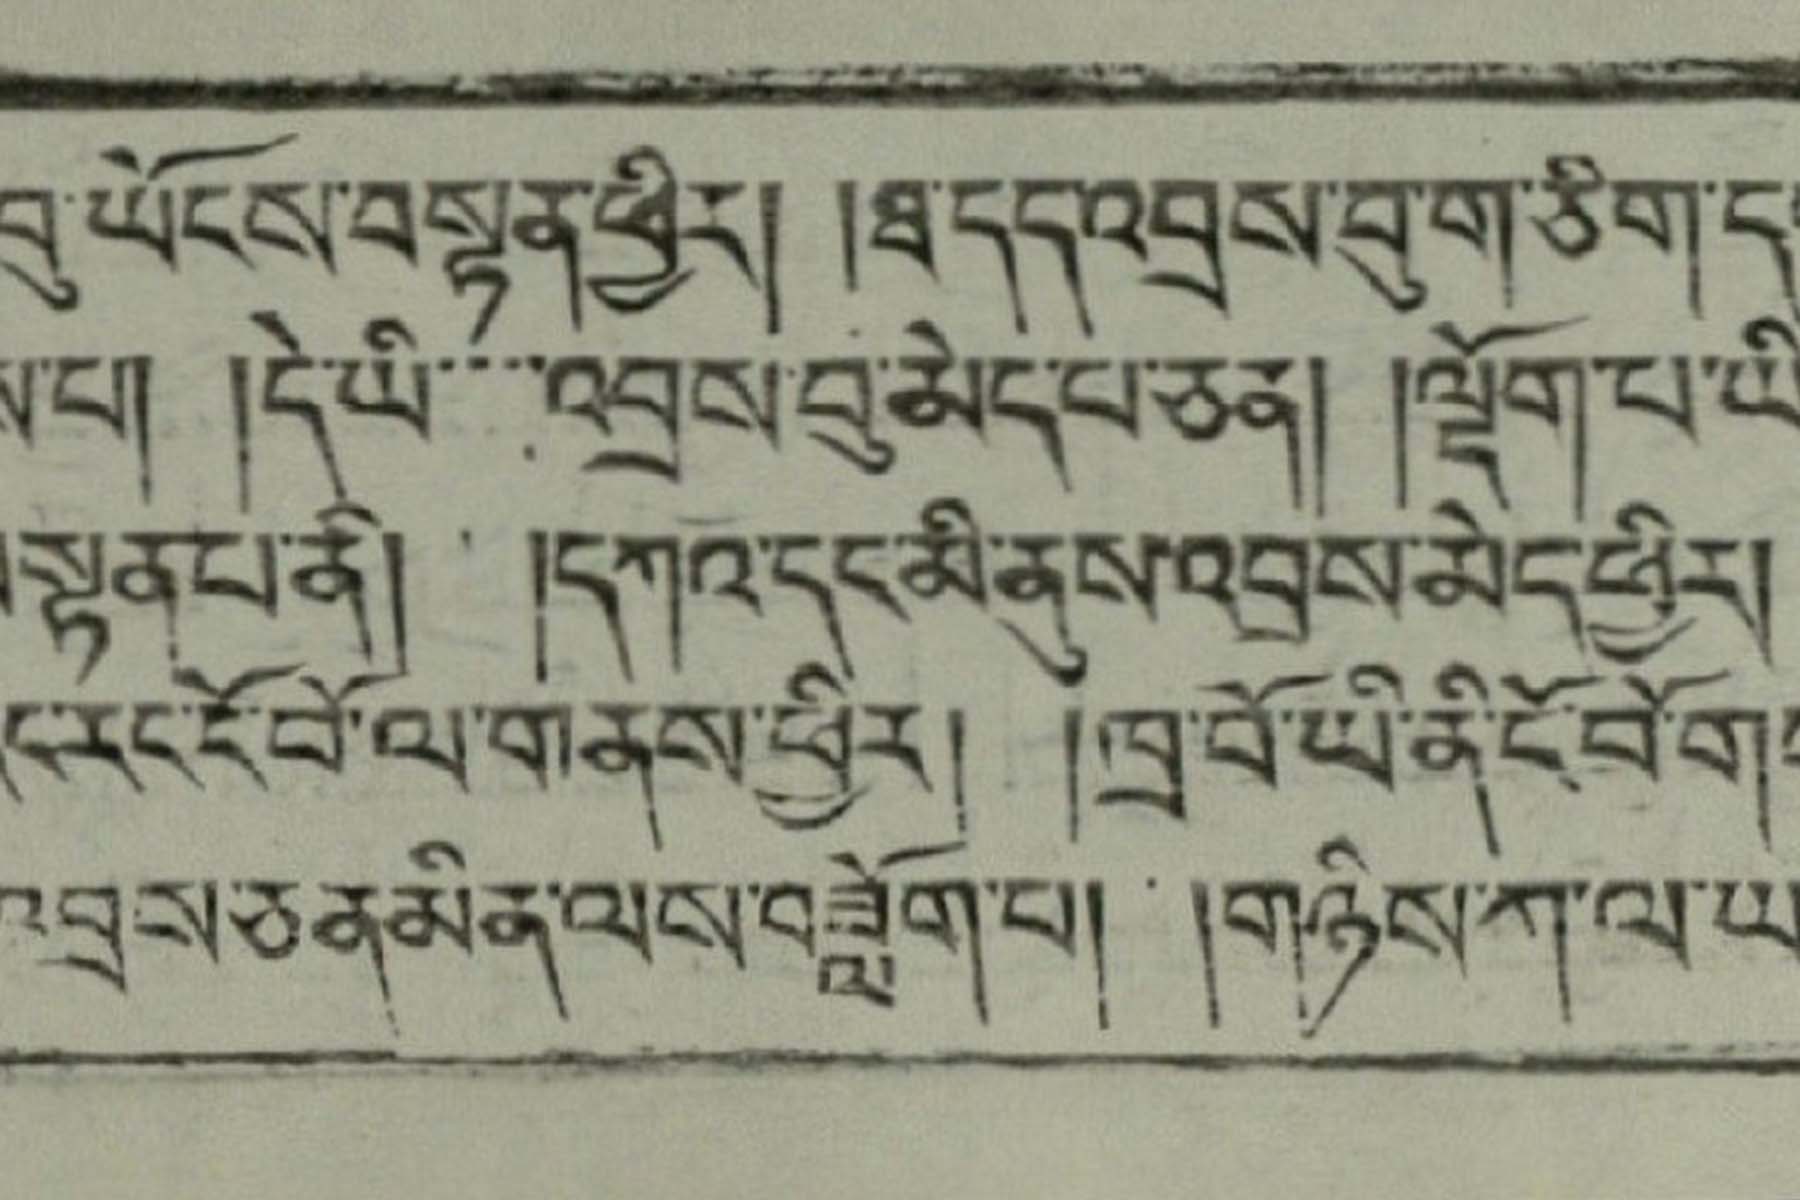 བུ་ཡོངས་བསྟན་ཕྱིར། །ཐ་དད་འབྲས་བུ་གཅིག་
པ། །དེ་ཡི་འབྲས་བུ་མེད་པ་ཅན། །ལྡོག་པ་ཡི
སྟན་པ་ནི། །དཀའ་དང་མི་ནུས་འབྲས་མེད་ཕྱིར།
རང་ངོ་བོ་ལ་གནས་ཕྱིར། །བྲ་བོ་ཡི་ནི་ངོ་བོ་ག
འབྲས་ཅན་མིན་ལས་བཟློག་པ། །གཉིས་ཀ་ལ་ཡ